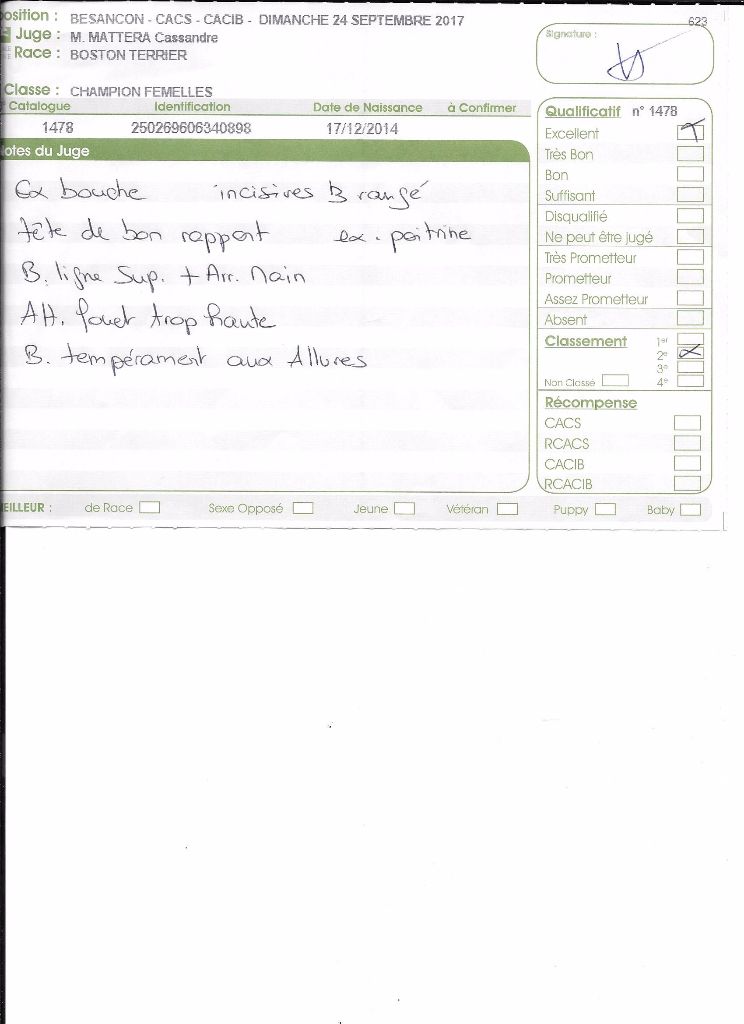 osition : BESANCON - CACS - CACIB - DIMANCHE 24 SEPTEMBRE 2017
623
Juge : M. MATTERA Cassandre
Signature :
Race : BOSTON TERRIER
Classe : CHAMPION FEMELLES
Catalogue Identification Date de Naissance à Confirmer
1478 250269606340898 17/12/2014
otes du Juge
Ex bouche incisives B rangé
tête de bon rapport ex. poitrine
B. ligne Sup. + Arr. Main
Att. fouet trop haute
B. tempérament aux Allures
Qualificatif n° 1478
Excellent
Très Bon
Bon
Suffisant
Disqualifié
Ne peut être jugé
Très Prometteur
Prometteur
Assez Prometteur
Absent
Classement 1er
2e
3e
Non Classé 4e
Récompense
CACS
RCACS
CACIB
RCACIB
EILLEUR : de Race Sexe Opposé Jeune Vétéran Puppy Baby